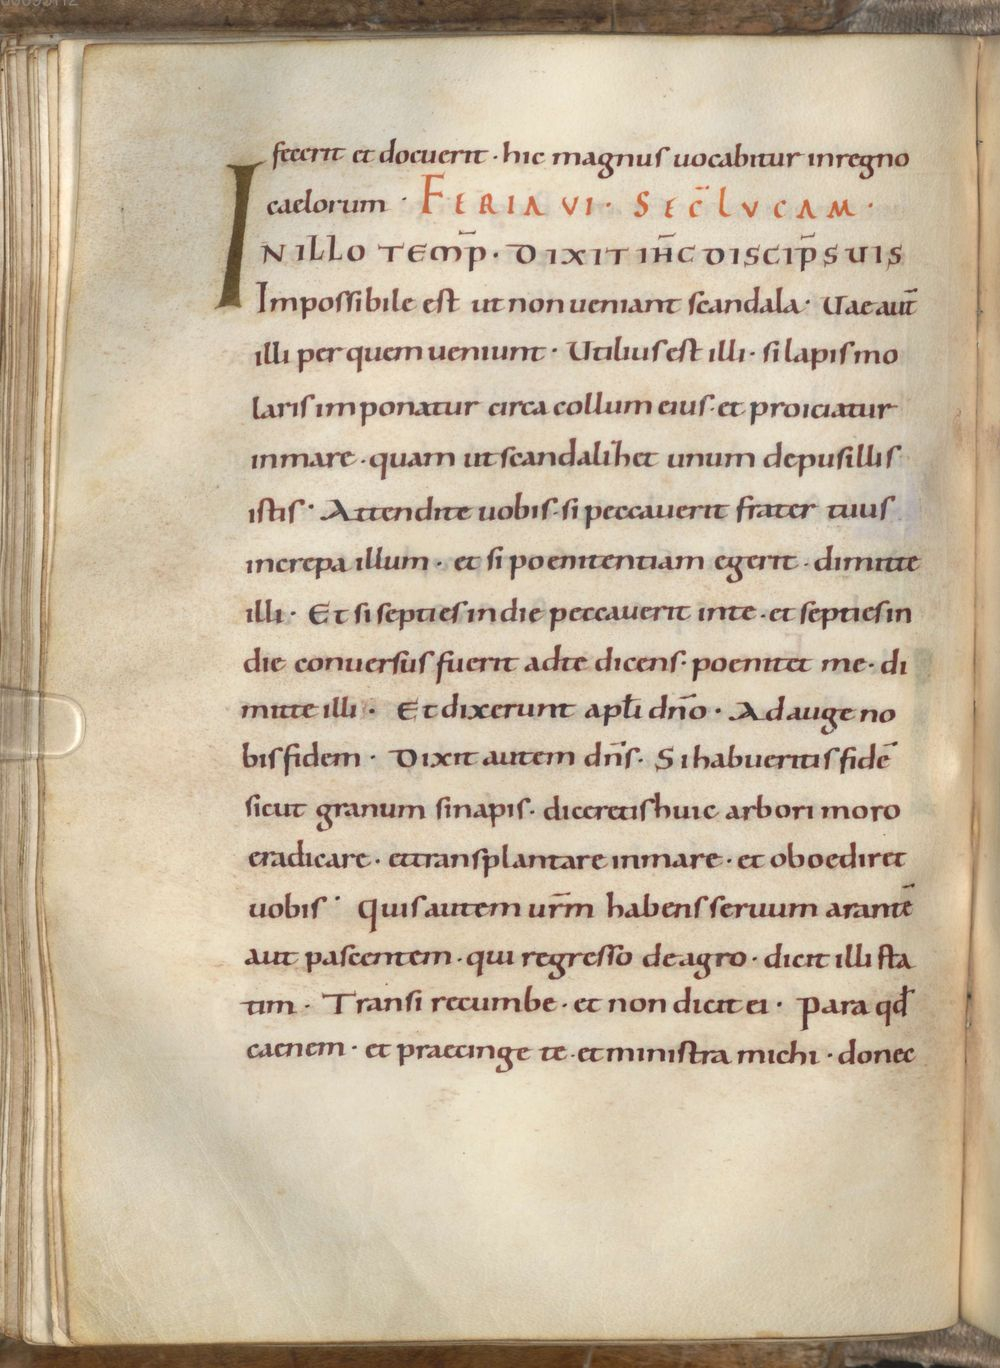 fecerit et docuerit · hic magnus uocabitur inregno
caelorum · FERIA VI · SEC̄ LVCAM ·
IN ILLO TEMP̄ · DIXIT IH̄C DISCIP̄S SUIS
Impossibile est ut non ueniant scandala · Uae aut̄
illi per quem ueniunt · Utilius est illi · si lapis mo
laris imponatur circa collum eius · et proiciatur
inmare · quam ut scandalihet unum depusillis
istis · Attendite uobis · si peccauerit frater tuus
increpa illum · et si poenitentiam egerit · dimitte
illi · Et si septies in die peccauerit inte · et septies in
die conuersus fuerit adte dicens · poenitet me · di
mitte illi · Et dixerunt apłi dn̄o · Adauge no
bis fidem · Dixit autem dn̄s · Si habueritis fidē
sicut granum sinapis · diceretis huic arbori moro
eradicare · et transplantare inmare · et oboediret
uobis · Quis autem ur̄m habens seruum arantē
aut pascentem · qui regresso de agro · dicit illi sta
tim · Transi recumbe · et non dicit ei · Para qđ
caenem · et praecinge te · et ministra michi · donec